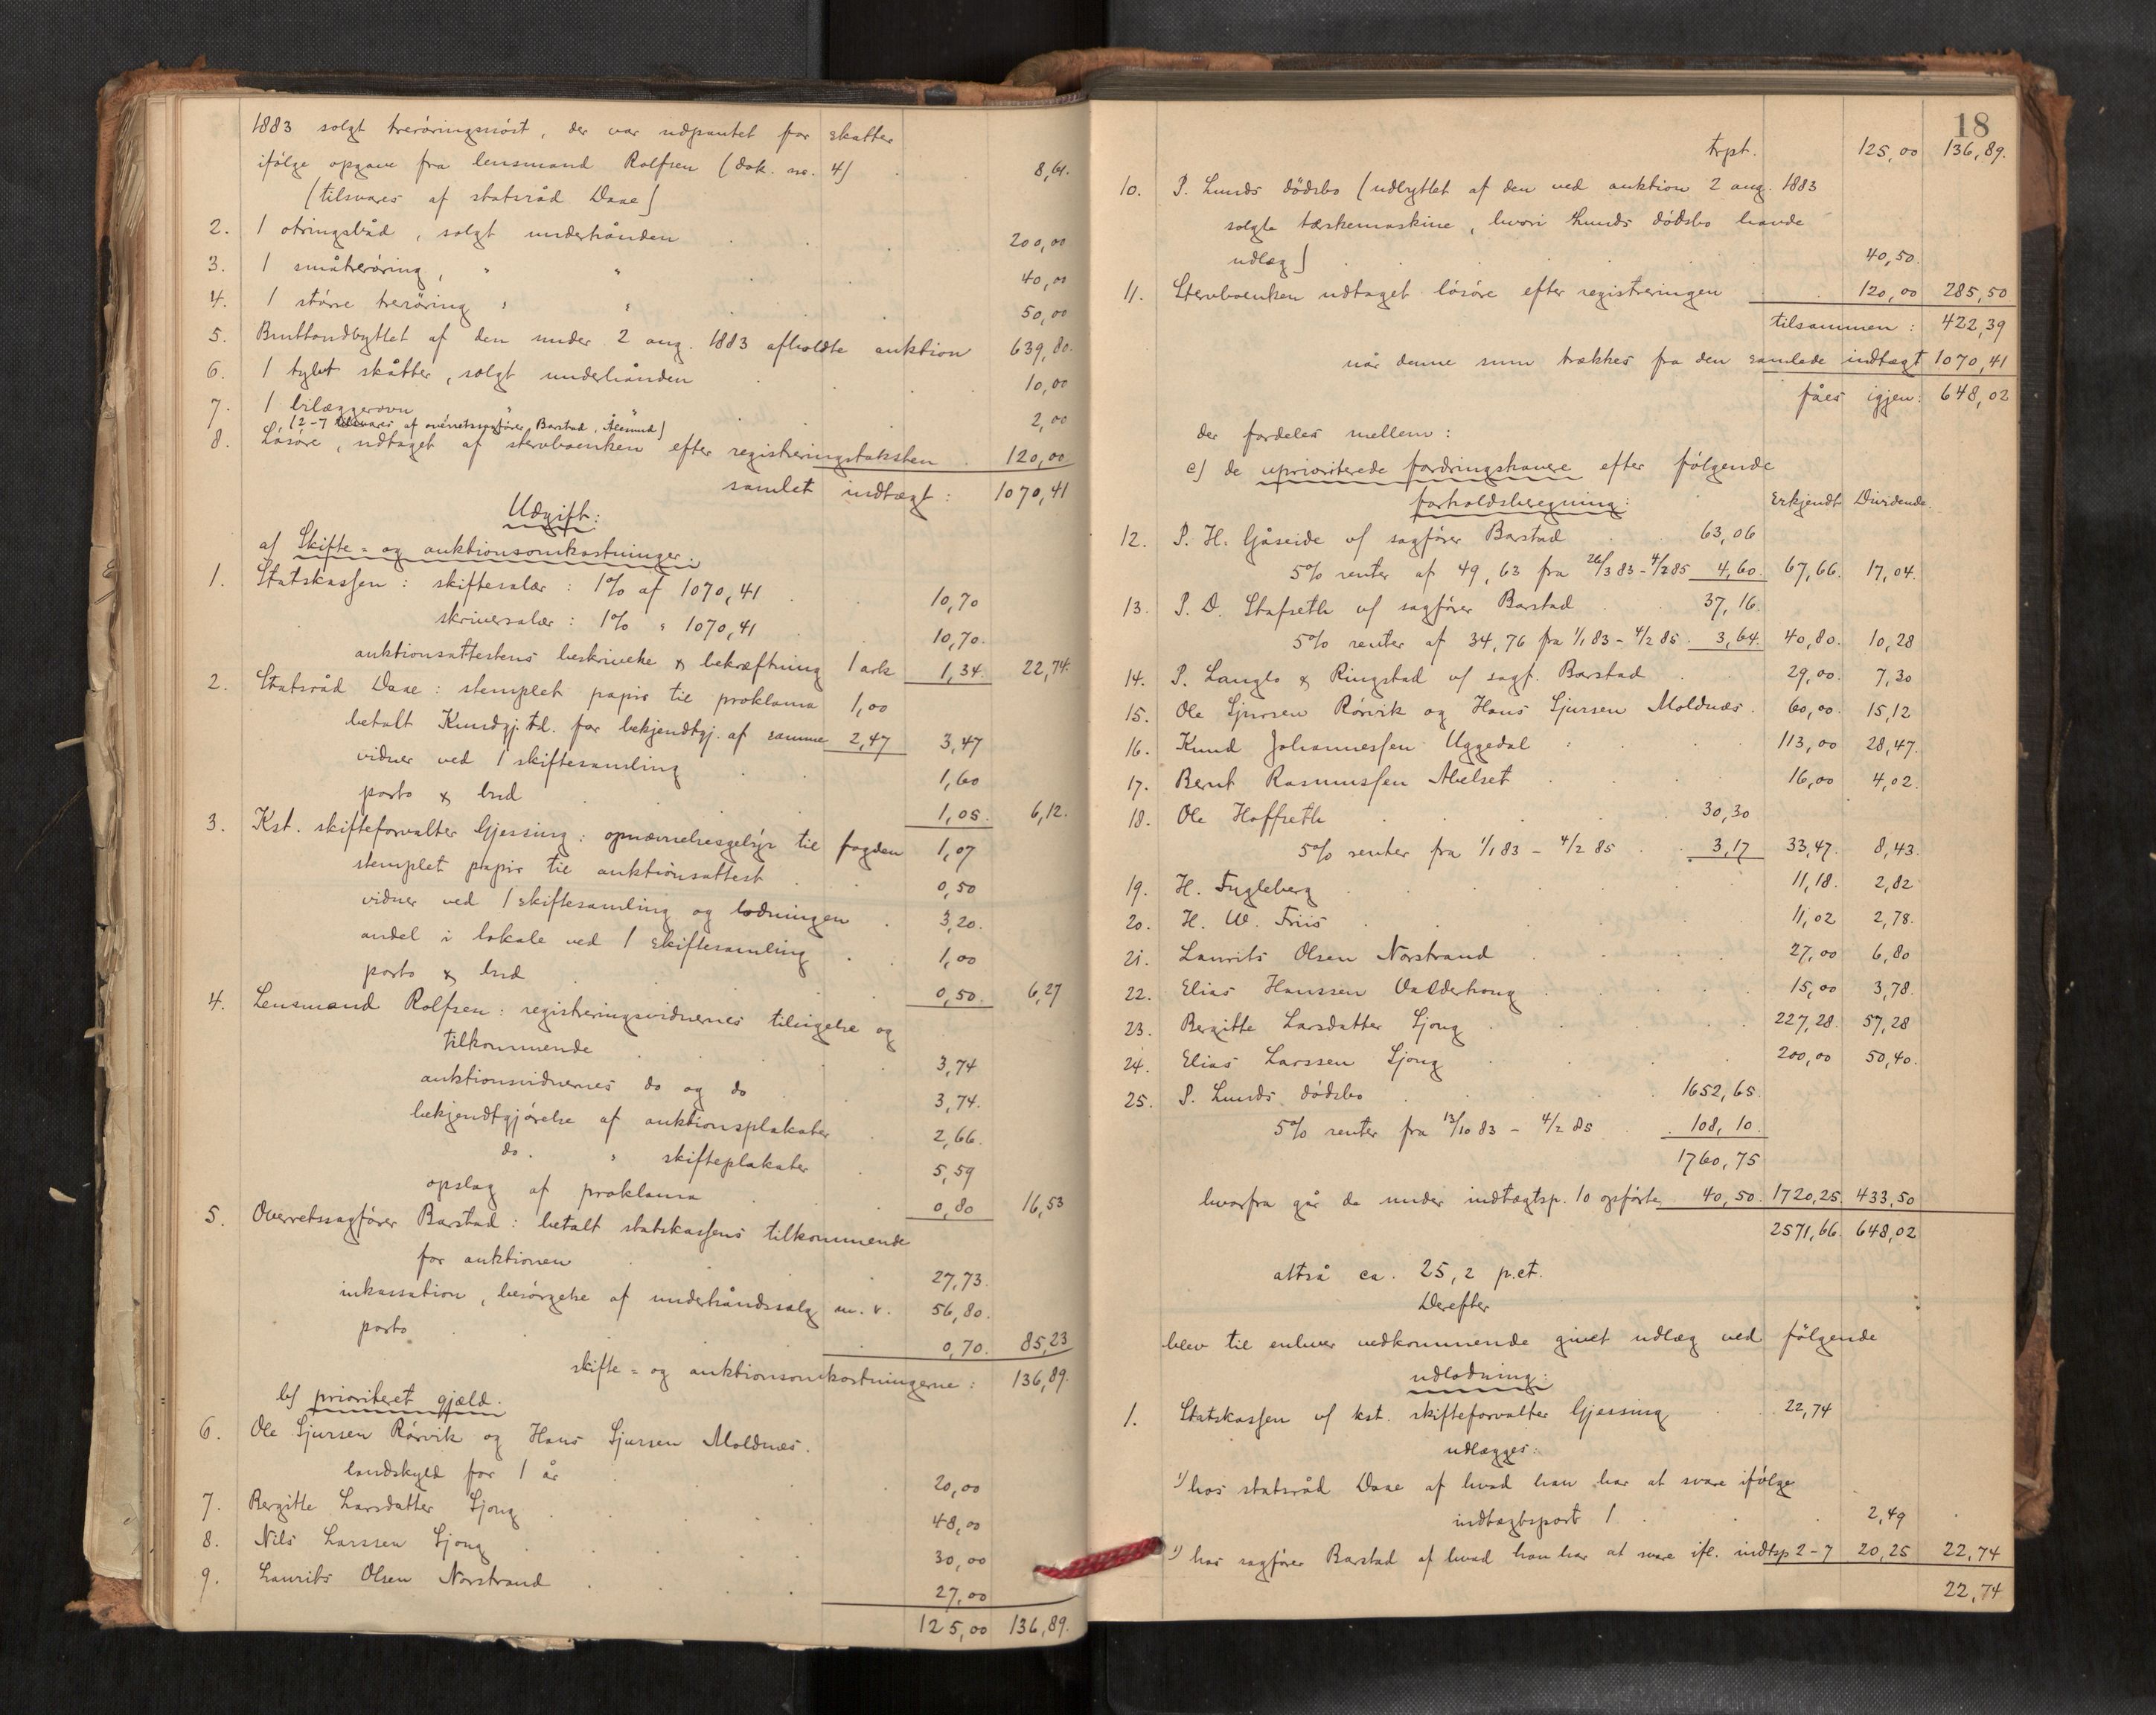 1883 solgt treröringsnöst, der var udpantet for skatter
ifölge opgave fra lensmand Rolfsen (dok. no. 4) 8,61.
(tilsvares af statsråd Daae)
2. 1 otringsbåd, solgt underhånden 200,00
3. 1 småtreröring, " " 40,00
4. 1 större treröring " " 50,00
5. Bruttoudbyttet af den under 2 aug. 1883 afholdte auktion 639,80.
6. 1 tylvt skåtter, solgt underhånden 10,00
7. 1 bilæggerovn " 2,00
(2-7 tilsvares af overretssagförer Barstad, Ålesund)
8. Lösöre, udtaget af stervboenken efter registreringstaksten 120,00
samlet indtægt: 1070,41
Udgift:
a) Skifte- og auktionsomkostninger.
1. Statskassen: skiftesalær: 1% af 1070,41 10,70
skriversalær: 1% " 1070,41 10,70.
auktionsattestens beskrivelse & bekræftning 1 ark 1,34. 22,74.
2. Statsråd Daae: stemplet papir til proklama 1,00
betalt Kundgj.td. for bekjendtgj. af samme 2,47 3,47
vidner ved 1 skiftesamling 1,60
porto & bud 1,05. 6,12.
3. Kst. skifteforvalter Gjessing: opnævnelsesgebyr til fogden 1,07
stemplet papir til auktionsattest 0,50
vidner ved 1 skiftesamling og lodningen 3,20.
andel i lokale ved 1 skiftesamling 1,00
porto & bud 0,50. 6,27
4. Lensmand Rolfsen: registreringsvidnernes tilsigelse og
tilkommende 3,74
auktionsvidnernes do og do 3,74.
bekjendtgjörelse af auktionsplakater 2,66.
do. " skifteplakater 5,59
opslag af proklama 0,80 16,53
5. Overretssagförer Barstad: betalt statskassens tilkommende
for auktionen 27,73.
inkassation, besörgelse af underhåndssalg m.v. 56,80.
porto 0,70. 85,23
skifte- og auktionsomkostningerne: 136,89.
b) prioriteret gjæld.
6. Ole Sjursen Rörvik og Hans Sjursen Moldnæs.
landskyld for 1 år 20,00
7. Bergitte Larsdatter Gjong 48,00
8. Nils Larssen Gjong 30,00
9. Laurits Olsen Norstrand 27,00
125,00 136,89.
18
trpt. 125,00 136,89.
10. P. Lunds dödsbo (udbyttet af den ved auktion 2 aug. 1883
solgte tærskemaskine, hvori Lunds dödsbo havde
udlæg) 40,50.
11. Stervboenken udtaget lösöre efter registreringen 120,00 285,50
tilsammen: 422,39
når denne sum trækkes fra den samlede indtægt 1070,41
fåes igjen: 648,02
der fordeles mellem:
c) de uprioriterede fordringshavere efter fölgende
forholdsberegning: Erkjendt Dividende.
12. P. H. Gåseide v/ sagförer Barstad 63,06
5% renter af 49,63 fra 26/3 83 - 4/2 85 4,60. 67,66. 17,04.
13. P. D. Stafseth v/ sagförer Barstad 37,16.
5% renter af 34,76 fra 1/1 83 - 4/2 85. 3,64. 40,80. 10,28
14. P. Langlo & Ringstad v/ sagf. Barstad 29,00. 7,30
15. Ole Sjursen Rörvik og Hans Sjursen Moldnæs. 60,00. 15,12
16. Knud Johannessen Uggedal 113,00 28,47.
17. Bernt Rasmussen Abelset 16,00 4,02.
18. Ole Hoffseth 30,30
5% renter fra 1/1 83 - 4/2 85 3,17 33,47. 8,43.
19. H. Fugleberg 11,18. 2,82
20. H. W. Friis 11,02 2,78.
21. Laurits Olsen Norstrand 27,00 6,80
22. Elias Hanssen Valderhoug 15,00 3,78.
23. Bergitte Larsdatter Gjong 227,28. 57,28
24. Elias Larssen Gjong 200,00 50,40.
25. P. Lunds dödsbo 1652,65.
5% renter fra 13/10 83 - 4/2 85 108,10.
1760,75
hvorfra går de under indtægtsp. 10 opförte 40,50. 1720,25. 433,50
2571,66. 648,02
altså ca. 25,2 p.ct.
Derefter
blev til enhver vedkommende givet udlæg ved fölgende
udlodning:
1. Statskassen v/ kst. skifteforvalter Gjessing 22,74
udlægges:
1) hos statsråd Daae af hvad han har at svare ifölge
indtægtspost 1 2,49
2) hos sagförer Barstad af hvad han har at svare ifl. indtsp 2-7 20,25 22,74
22,74